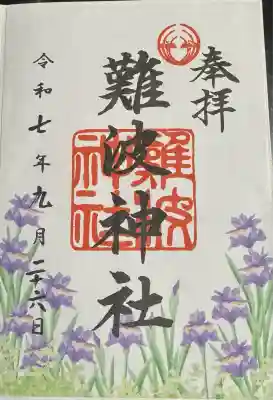 奉拝
難波神社
難波
神社
令和七年九月二十六日